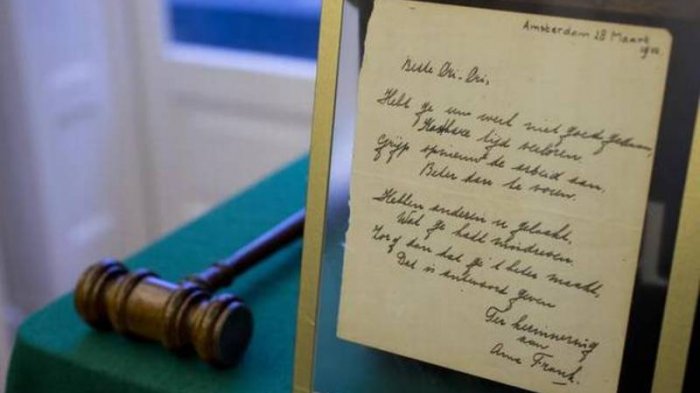 Amsterdam 28 Maart
1942
Beste Cri-Cri,
Hebt ge uw werk niet goed gedaan,
Kostbare tijd verloren
Grijp opnieuw de arbeid aan.
Beter dan te voren.
Hebben anderen u gelaakt,
Wat ge hadt misdreven
Zorg dan dat ge 't beter maakt,
Dat is antwoord geven
Ter herinnering
aan
Anne Frank.